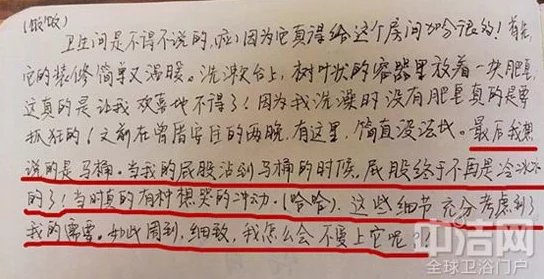 (哈哈)
卫生间是不得不说的,应因为它真得给这个房间加分很的!首先
它的装修简单又温暖。洗漱台上,树叶状的容器里放着一块肥皂,
这真的是让我欢喜地不得了!因为我洗澡时没有肥皂真的是要
抓狂的!之前在曾厝安住的两晚,有这里,简直没法找。最后我想
说的是马桶。当我的屁股沾到马桶的时候,屁股终于不再是冷冰冰
的了!当时真的有种想哭的冲动!(哈哈)。这些细节充分考虑到了
我的需要。如此周到,细致,我怎么会不爱上它呢?!
中洁网
全球卫浴门户